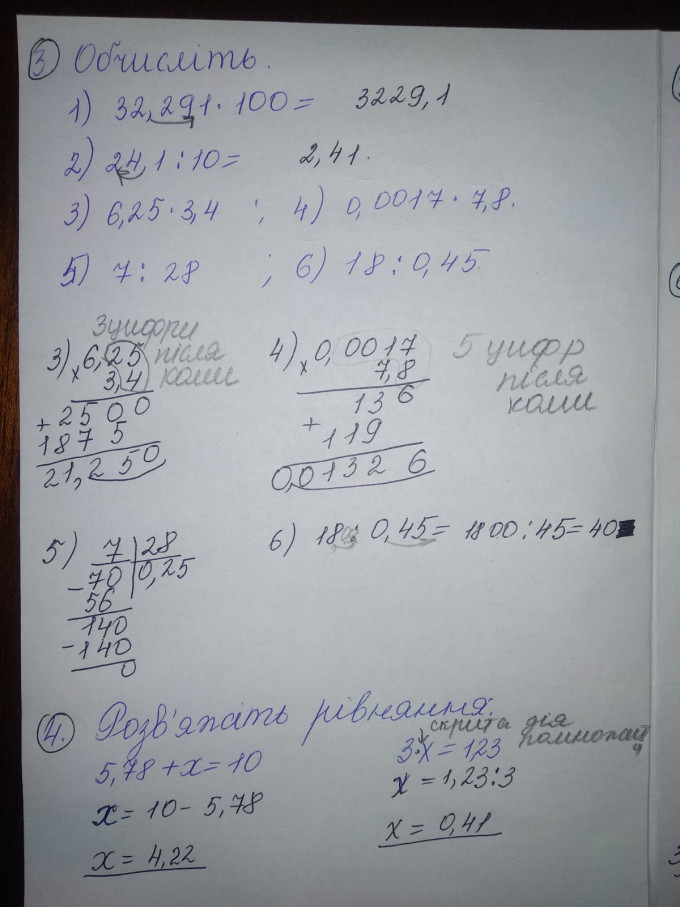 3 Обчисліть.
1) 32,291 · 100 = 3229,1
2) 24,1 : 10 = 2,41.
3) 6,25 · 3,4 ; 4) 0,0017 · 7,8.
5) 7 : 28 ; 6) 18 : 0,45.
3) × 6,25 3 цифри після коми
3,4
+ 2500
1875
21,250
4) × 0,0017 5 цифр після коми
7,8
136
+ 119
0,01326
5) 7 | 28
- 70 | 0,25
56
- 140
140
0
6) 18 : 0,45 = 1800 : 45 = 40
4. Розв'яжіть рівняння:
5,78 + x = 10
x = 10 - 5,78
x = 4,22
скрита дія
3·x = 1,23
x = 1,23 : 3
x = 0,41